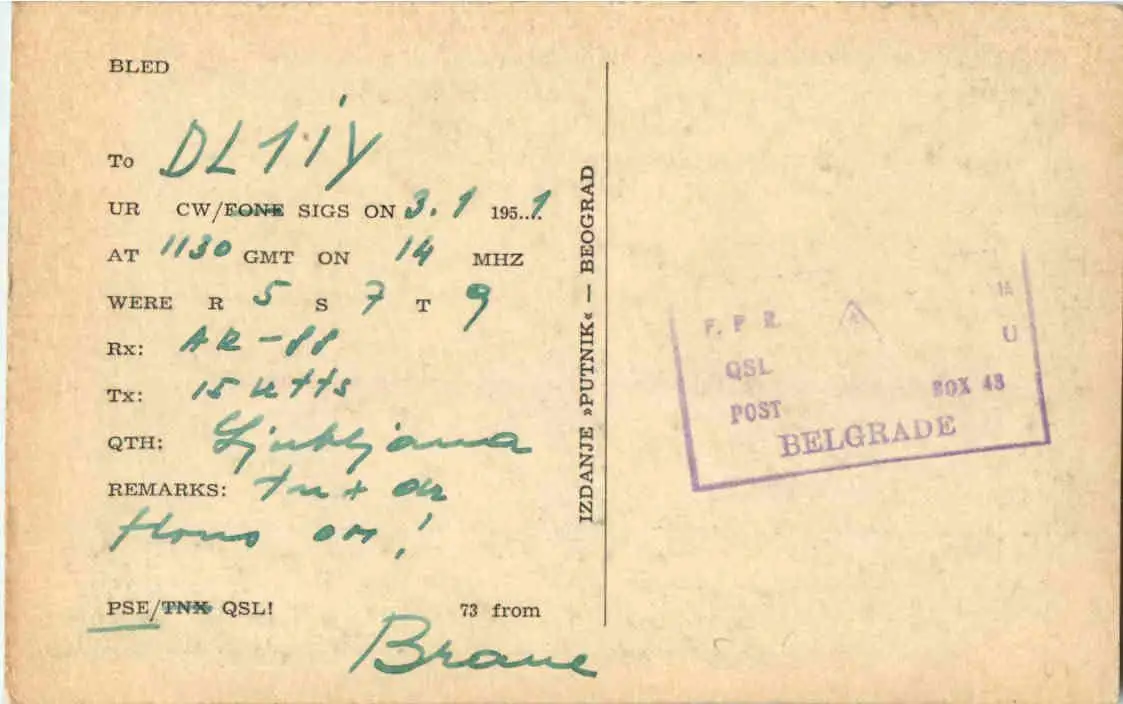 BLED
To DL1iY
UR CW/FONE SIGS ON 3.1 195...1
AT 1130 GMT ON 14 MHZ
WERE R 5 S 7 T 9
Rx: AR-88
Tx: 15 Wtts
QTH: Ljubljana
REMARKS: Tnx dr
om!
PSE/TNX QSL!
73 from
Brane
IZDANJE »PUTNIK« — BEOGRAD
QSL
U
POST BOX 48
BELGRADE